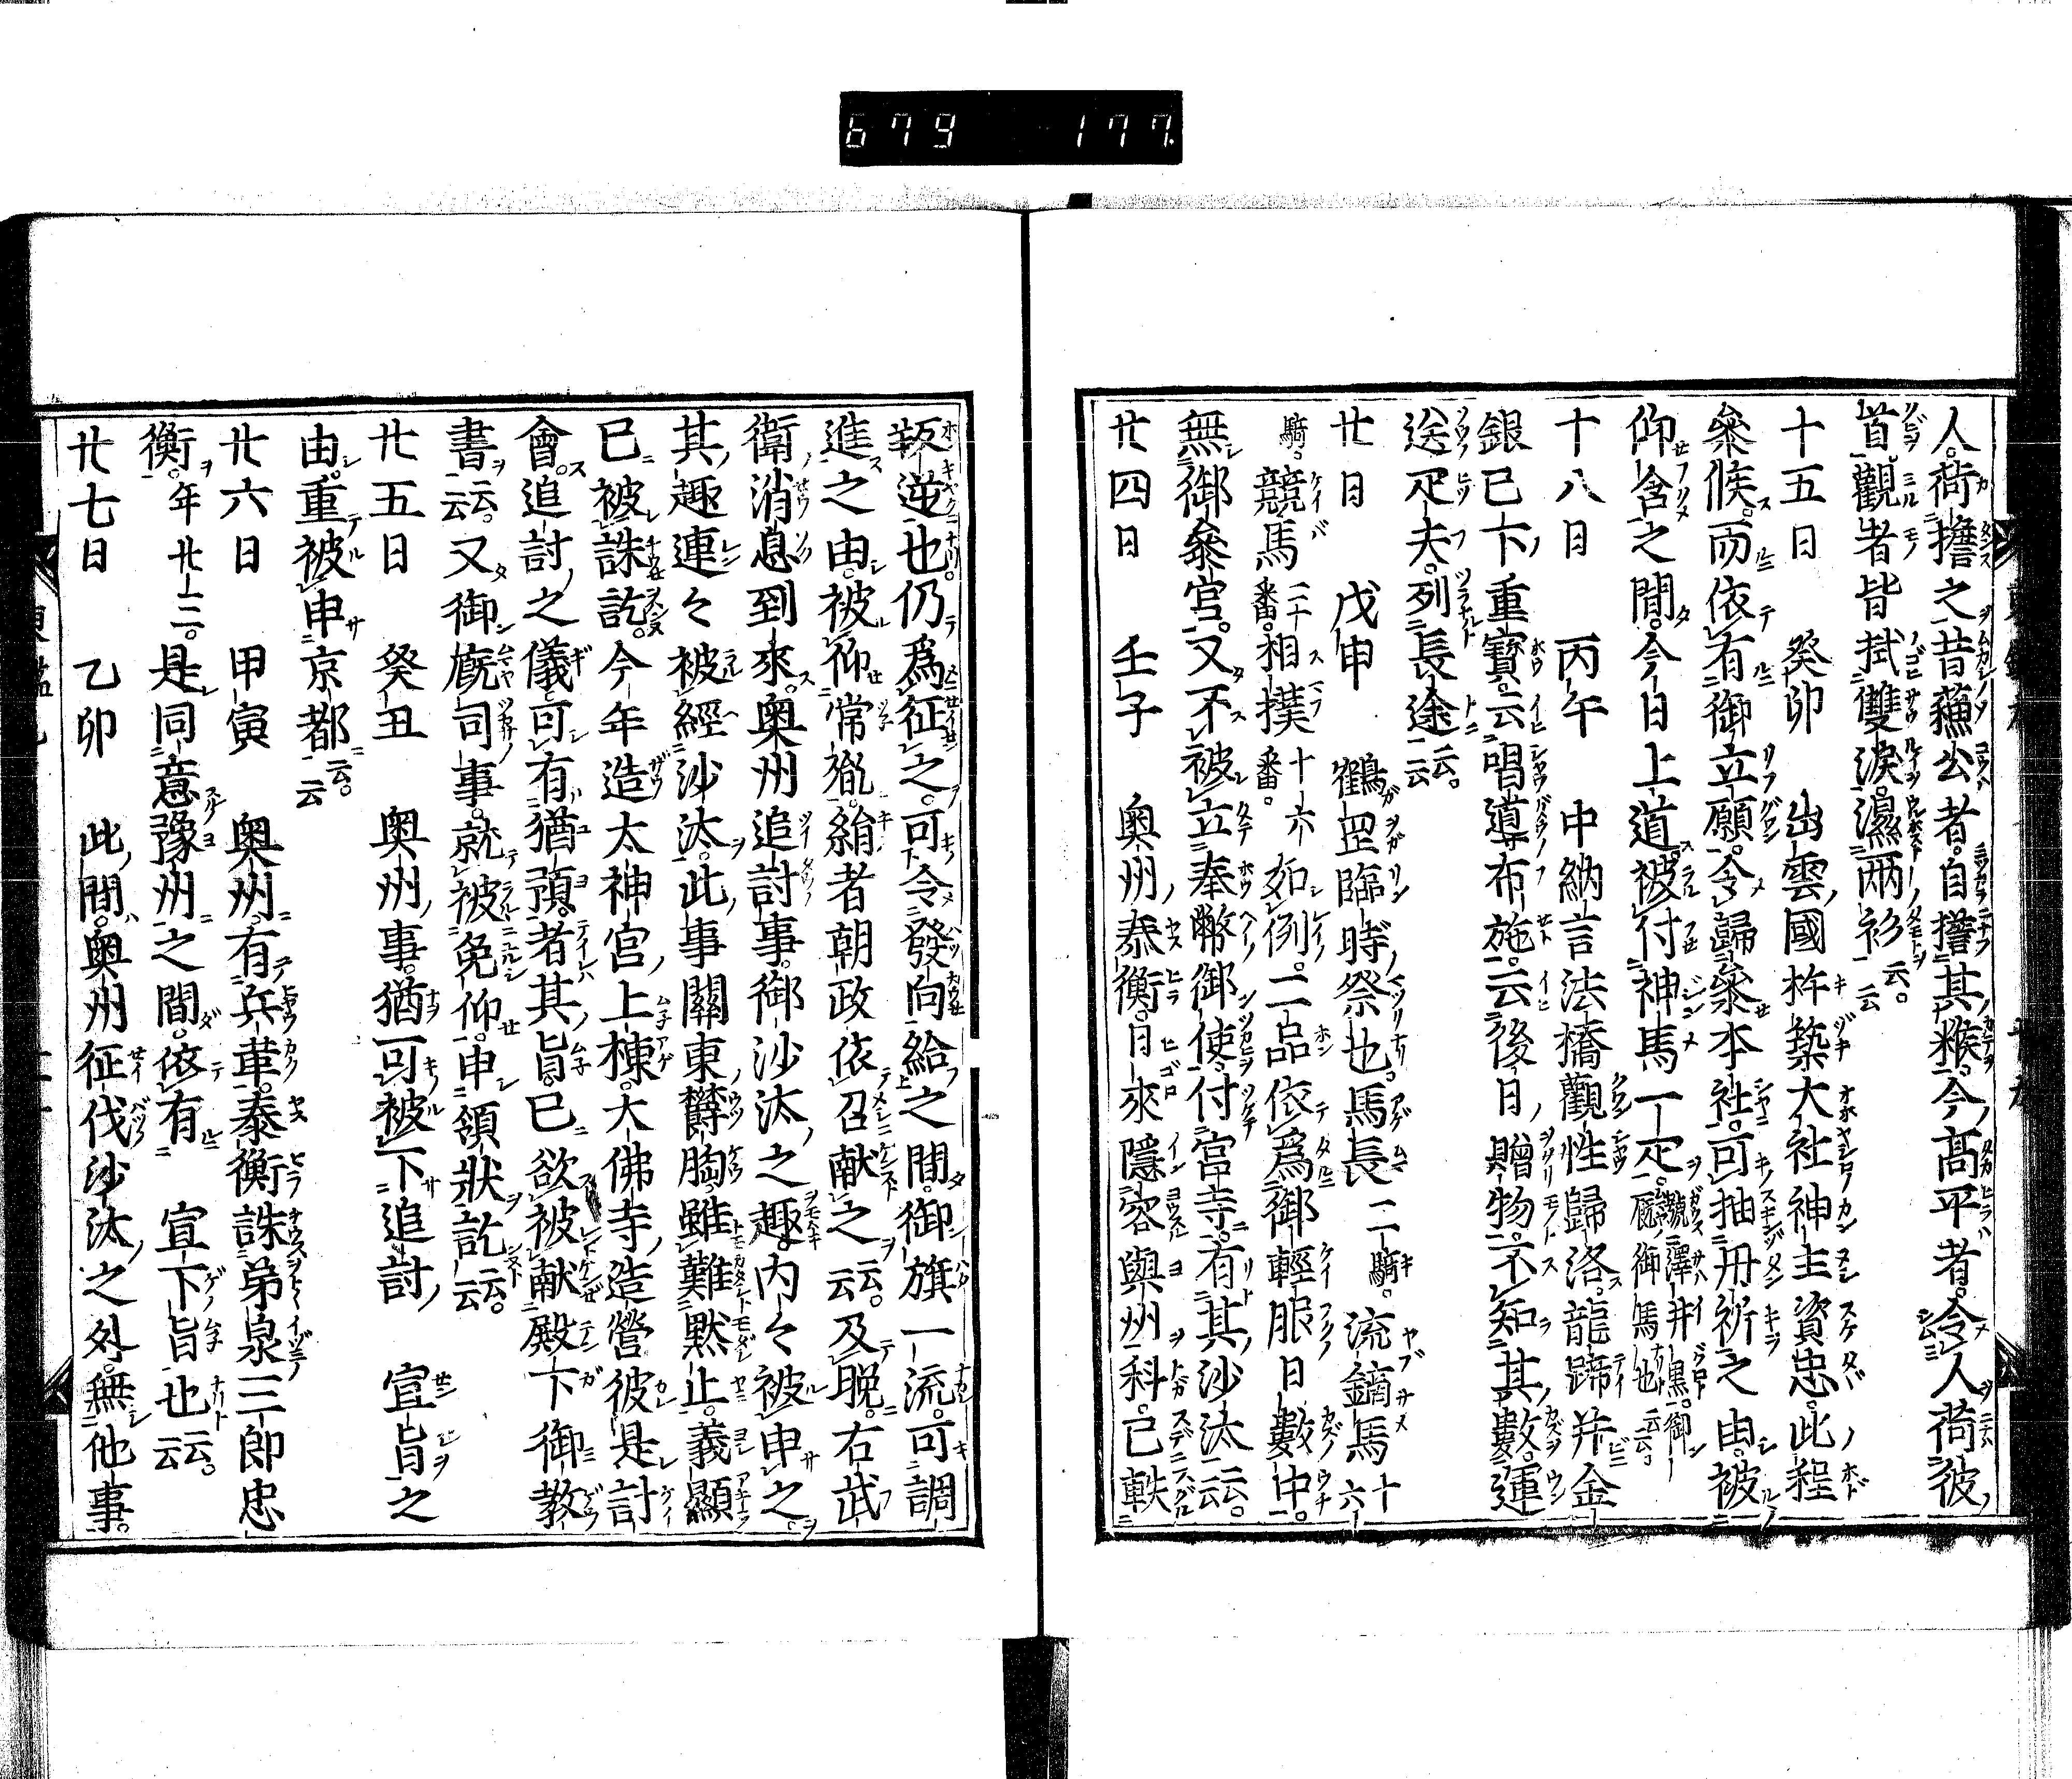 679 177.
人。荷擔之。昔蘓公者。自擔其粮。今高平者。令人荷彼
首。觀者皆拭雙淚。濕兩衫云云。
十五日 癸卯 出雲國杵築大社神主資忠。此程
參候。而依有御立願。令歸參本社。可抽丹祈之由。被
仰含之間。今日上道。被付神馬一疋。號澤井黑。御厩御馬也云云。
十八日 丙午 中納言法橋觀性歸洛。龍蹄幷金
銀已下。重寶。云唱導布施。云後日贈物。不知其數。運
送疋夫。列長途云云。
廿日 戊申 鶴罡臨時祭也。馬長二騎。流鏑馬十六
騎。競馬二十番。相撲十六番。如例。二品依爲御輕服日數中。
無御參宮。又不被立奉幣御使。付宮寺。有其沙汰云云。
廿四日 壬子 奥州泰衡。日來隱容與州科。已軼
叛逆也。仍爲征之。可令發向給之間。御旗一流。可調
進之由。被仰常胤。絹者朝政依召献之云云。及晩。右武
衛消息到來。奥州追討事。御沙汰之趣。内々被申之。
其趣連々被經沙汰。此事關東欝胸。雖難黙止。義顯
已被誅訖。今年造太神宮上棟。大佛寺造營。彼是計
會。追討之儀。可有猶預者。其旨。已欲被献殿下御教
書云云。又御厩司事。就被免仰。申領狀訖云云。
廿五日 癸丑 奥州事。猶可被下追討宣旨之
由。重被申京都云云。
廿六日 甲寅 奥州有兵革。泰衡誅弟泉三郎忠
衡。年廿二。是同意豫州之間。依有宣下旨也云云。
廿七日 乙卯 此間。奥州征伐沙汰之外。無他事。